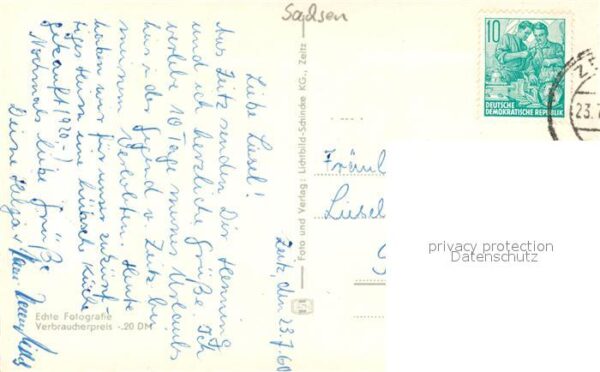 Sachsen
10
DEUTSCHE
DEMOKRATISCHE REPUBLIK
23.7
Zeitz, den 23.7.60
Liebe Liesel!
Aus Zeitz senden Dir Henning
und ich herzliche Grüße. Ich
verlebe 10 Tage meines Urlaubs
hier in der Gegend v. Zeitz bei
meinem Verlobten. Heute
haben wir für unser zukünf-
tiges Heim eine hübsche Küche
gekauft (920.-)
Nochmals liebe Grüße
Deine Helga
Foto und Verlag: Lichtbild-Schincke KG., Zeitz
Fräul
Liesel
privacy protection
Datenschutz
Echte Fotografie
Verbraucherpreis -.20 DM